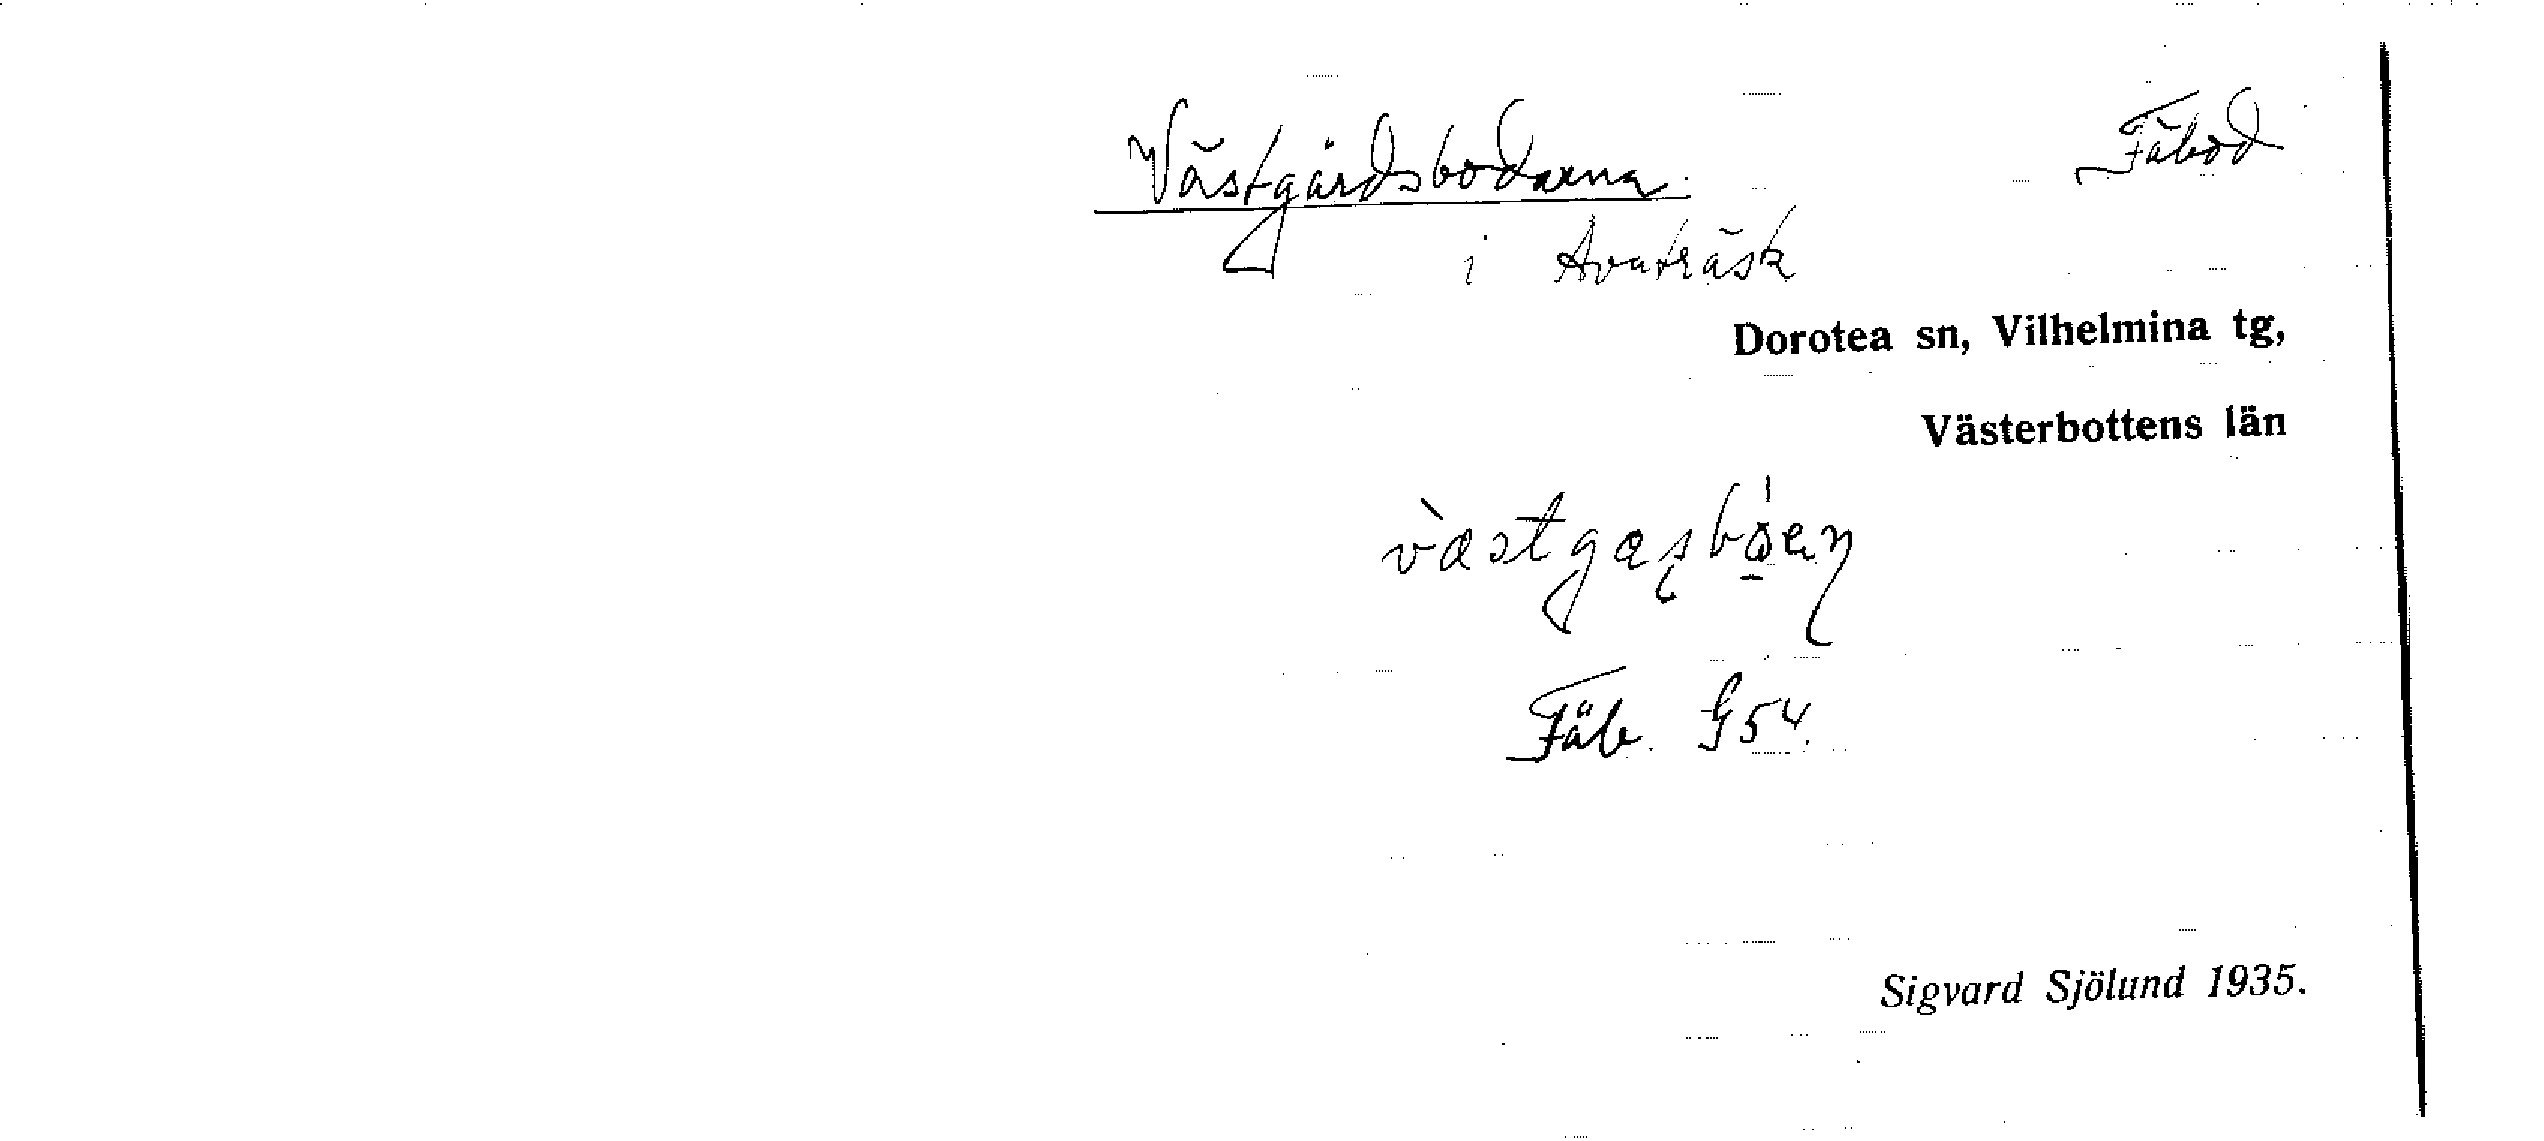 Västgårdsbodarna Fäbod
i Avaträsk
Dorotea sn, Vilhelmina tg,
Västerbottens län
Fäb. G54.
Sigvard Sjölund 1935.